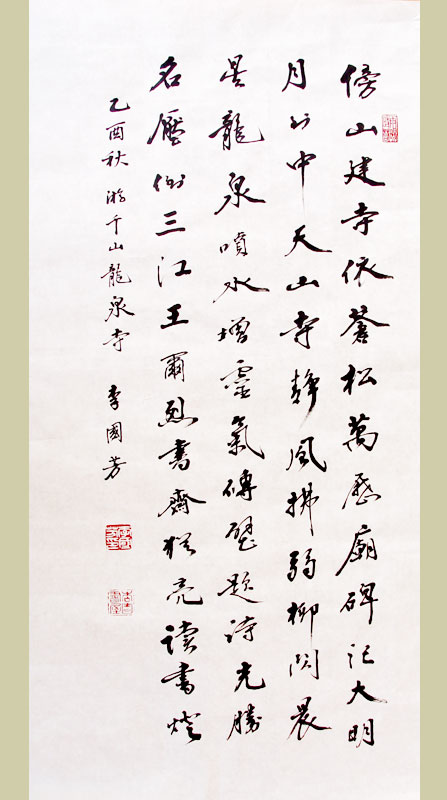 傍山建寺依蒼松萬歷廟碑記大明
月出中天山寺靜風拂弱柳閃晨
星龍泉噴水增靈氣磚壁題詩尤勝
名壓倒三江王爾烈書齋猶亮讀書燈
乙酉秋游千山龍泉寺 李國芳